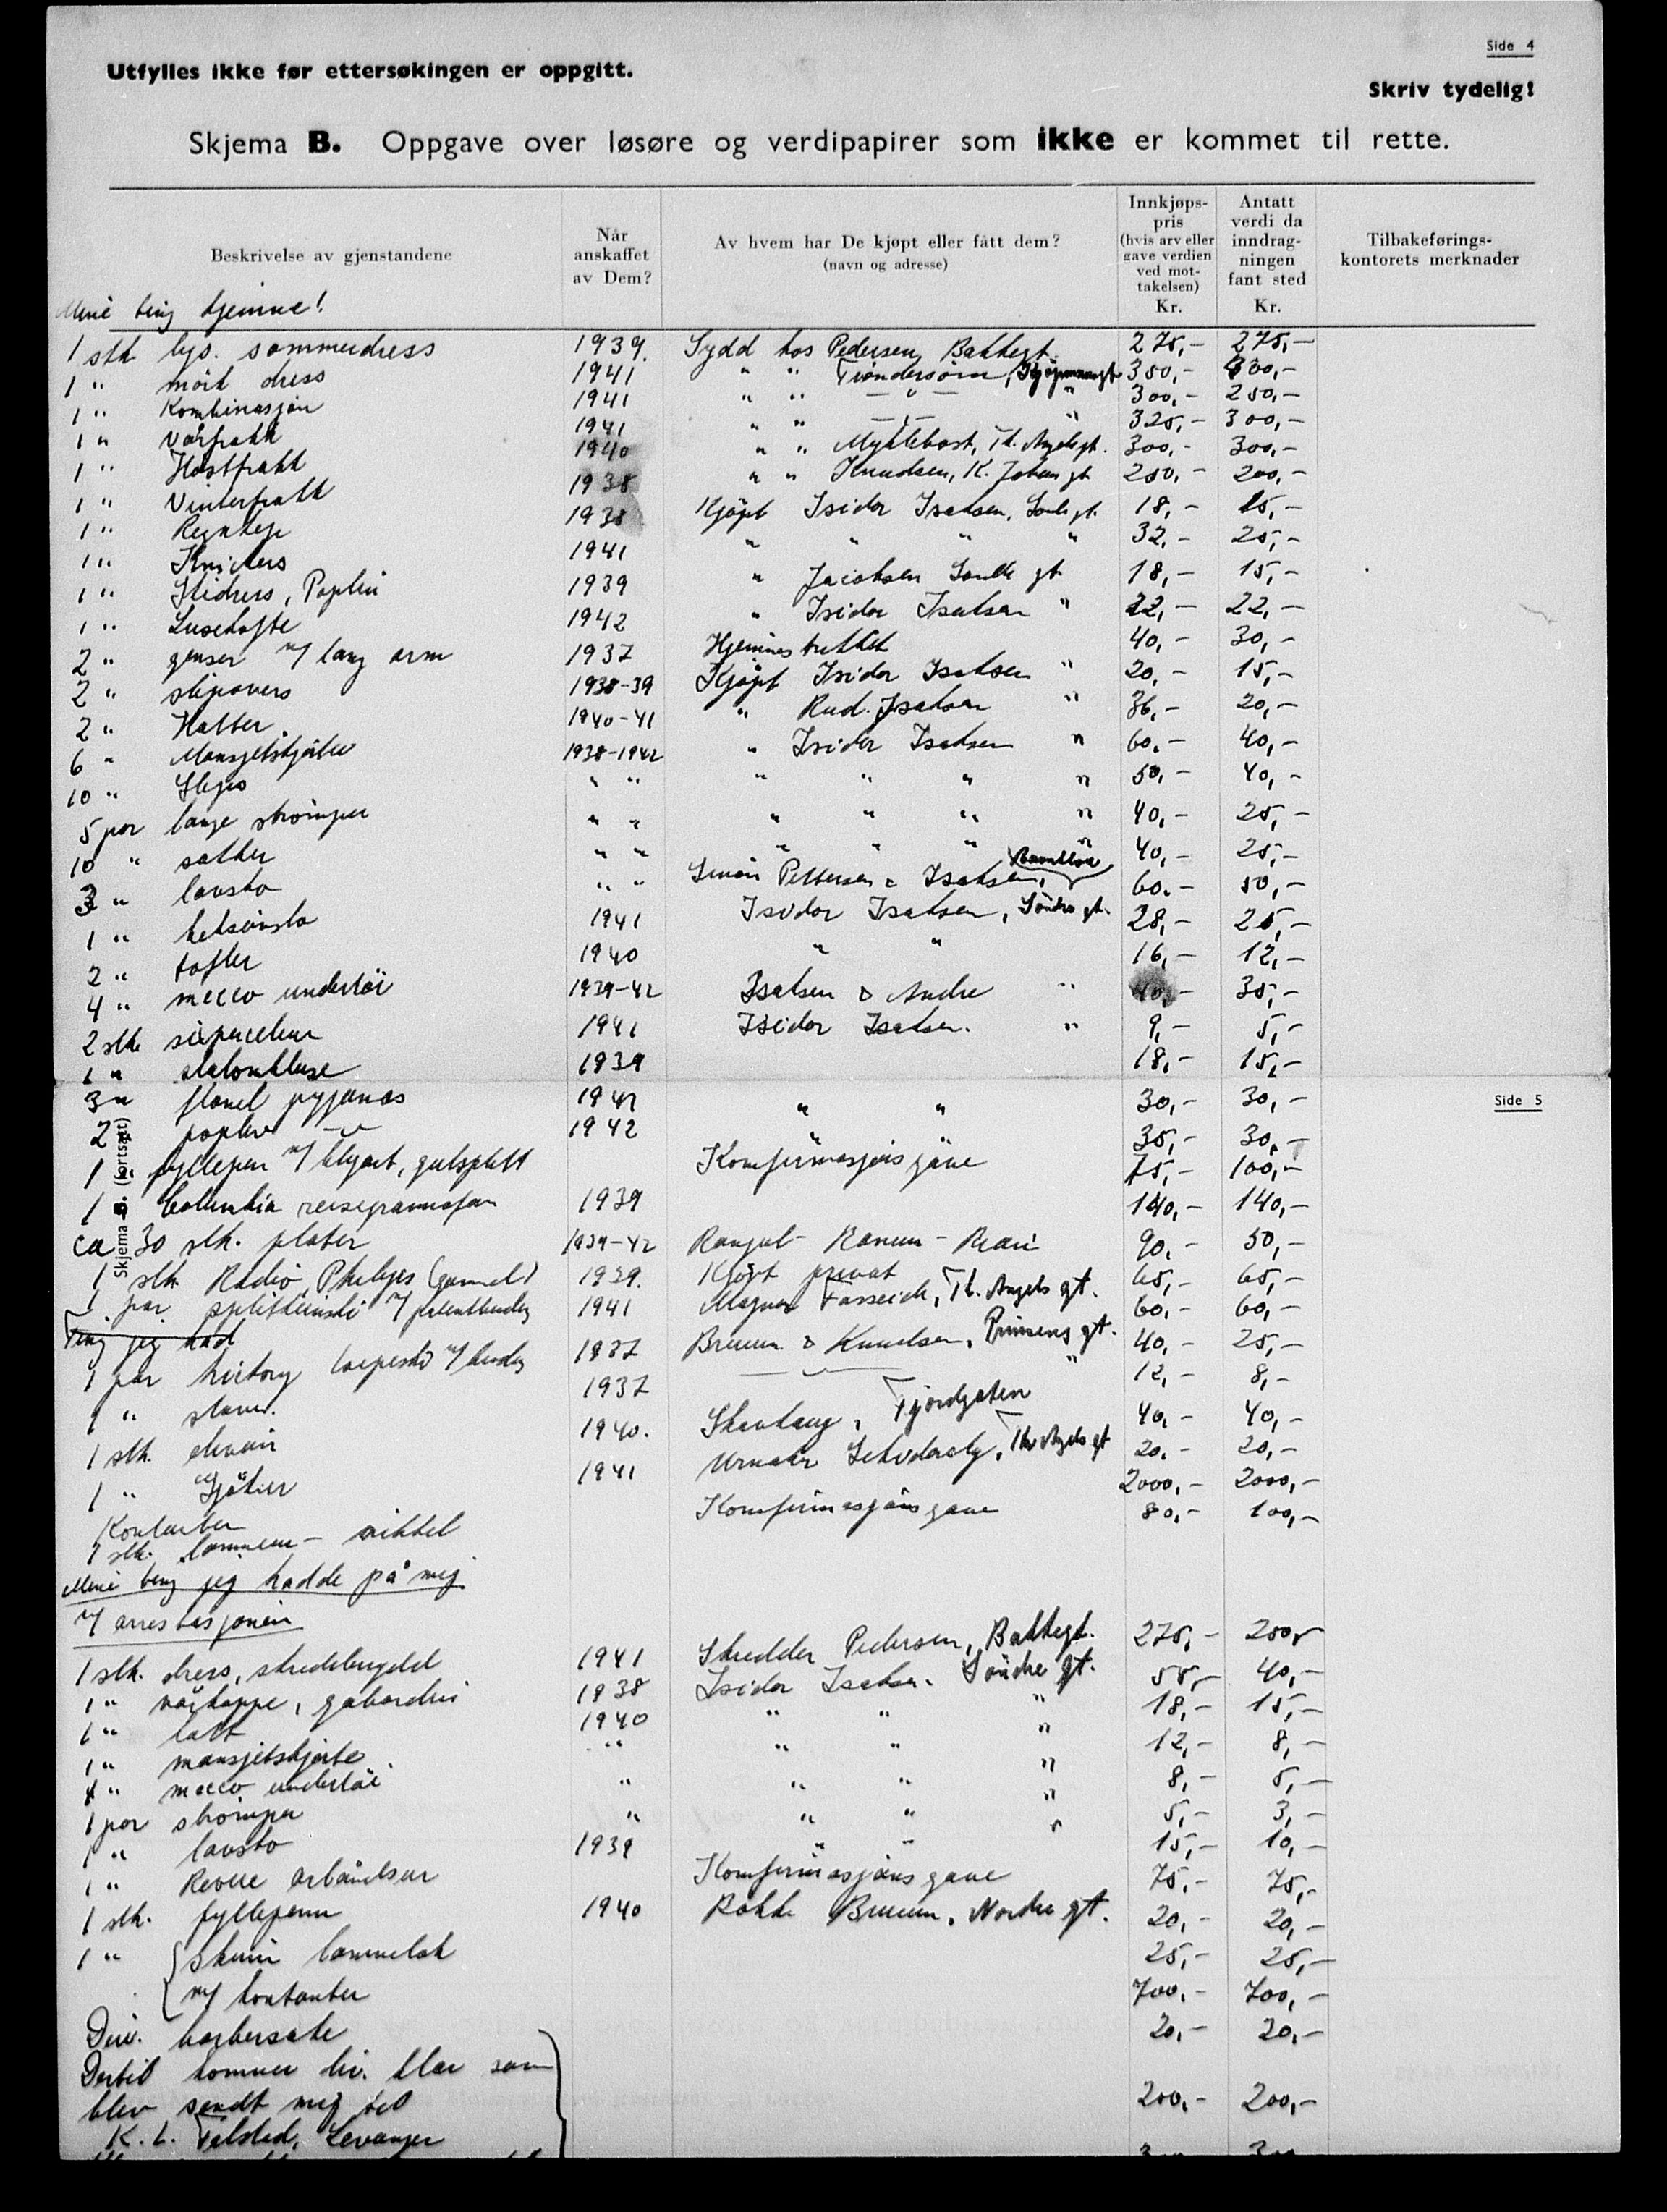 Side 4
Utfylles ikke før ettersøkingen er oppgitt.
Skriv tydelig!
Skjema B. Oppgave over løsøre og verdipapirer som ikke er kommet til rette.
Beskrivelse av gjenstandene
Når anskaffet av Dem?
Av hvem har De kjøpt eller fått dem? (navn og adresse)
Innkjøps-pris (hvis arv eller gave verdien ved mot-takelsen) Kr.
Antatt verdi da inndrag-ningen fant sted Kr.
Tilbakeførings-kontorets merknader
Mine ting hjemme!
1 stk lys. sommerdress 1939. Sydd hos Pedersen, Bakkegt. 275,- 275,-
1 " mørk dress 1941 " " Trøndersøm, 350,- 300,-
1 " Kombinasjon 1941 " " — " — " 300,- 250,-
1 " Vårfrakk 1941 " " — " — " 325,- 300,-
1 " Høstfrakk 1940 " " Myklebost, Th. Angels gt. 300,- 300,-
1 " Vinterfrakk 1938 " " Knudsen, K. Johans gt 250,- 200,-
1 " 1938 Kjøpt Isidor Isaksen, Søndre gt. 18,- 15,-
1 " Knickers 1941 " " " " 32,- 25,-
1 " Skidress, Poplin 1939 " Jacobsen Søndre gt 18,- 15,-
1 " Lusekofte 1942 " Isidor Isaksen " 22,- 22,-
2 " genser m/ lang arm 1937 Hjemmestrikket 40,- 30,-
2 " slipovers 1938-39 Kjøpt Isidor Isaksen " 20,- 15,-
2 " Hatter 1940-41 " Rud. Isaksen " 36,- 20,-
6 " Mansjetskjorter 1938-1942 " Isidor Isaksen " 60,- 40,-
10 " Slips " " " " " " 50,- 40,-
5 par lange strømper " " " " " " 40,- 25,-
10 " sokker " " " " " " 40,- 25,-
3 " lavsko " " Simon Pettersen & Isaksen, 60,- 50,-
1 " 1941 Isidor Isaksen, Søndre gt. 28,- 25,-
2 " tøfler 1940 " " 16,- 12,-
4 " macco undertøi 1939-42 Isaksen & Andre " 40,- 35,-
2 stk 1941 Isidor Isaksen. " 9,- 5,-
1 " slalombluse 1939 18,- 15,-
3 " flanel pyjamas 1941 " " 30,- 30,-
Side 5
Skjema B. (fortsatt)
2 " poplin — " — 1942 35,- 30,-
1 " fyllepen m/ blyant, gulsplett Konfirmasjonsgave 75,- 100,-
1 " Columbia reisegramofon 1939 140,- 140,-
ca 30 stk. plater 1939-42 90,- 50,-
1 stk Radio, Philips (gammel) 1939. Kjøpt privat 65,- 65,-
1 par splitkeinski m/ patentbinding 1941 Magnar Fasseide, Th. Angels gt. 60,- 60,-
Ting jeg had
1 par hickory langrenski m/ binding 1937 Bruun & Knudsen, Prinsens gt. 40,- 25,-
1 " staver. 1937 — " — " 12,- 8,-
1 stk. 1940. Skaslaug, Fjordgaten 40,- 40,-
1 " 1941 Urmaker, Th. Angels gt 20,- 20,-
Kontanter 2000,- 2000,-
1 stk. lommeur - nikkel Konfirmasjonsgave 80,- 100,-
Mine ting jeg hadde på mig
v/ arrestasjonen
1 stk. dress, skreddersydd 1941 Skredder Pedersen, Bakkegt. 275,- 200,-
1 " vårkappe, gabardin 1938 Isidor Isaksen. Søndre gt. 55,- 40,-
1 " hatt 1940 " " " 18,- 15,-
1 " mansjetskjorte " " " " 12,- 8,-
1 " macco undertøi " " " " 8,- 5,-
1 par strømper " " " " 5,- 3,-
1 " lavsko 1939 " " " 15,- 10,-
1 " Revue armbåndsur Konfirmasjonsgave 75,- 75,-
1 stk. fyllepenn 1940 Bokh. Bruun, Nordre gt. 20,- 20,-
1 " skinn lommebok 25,- 25,-
m/ kontanter 700,- 700,-
Div. barbersake 20,- 20,-
Dertil kommer div. klær som
blev sendt mig til 200,- 200,-
K. L. Falstad, Levanger